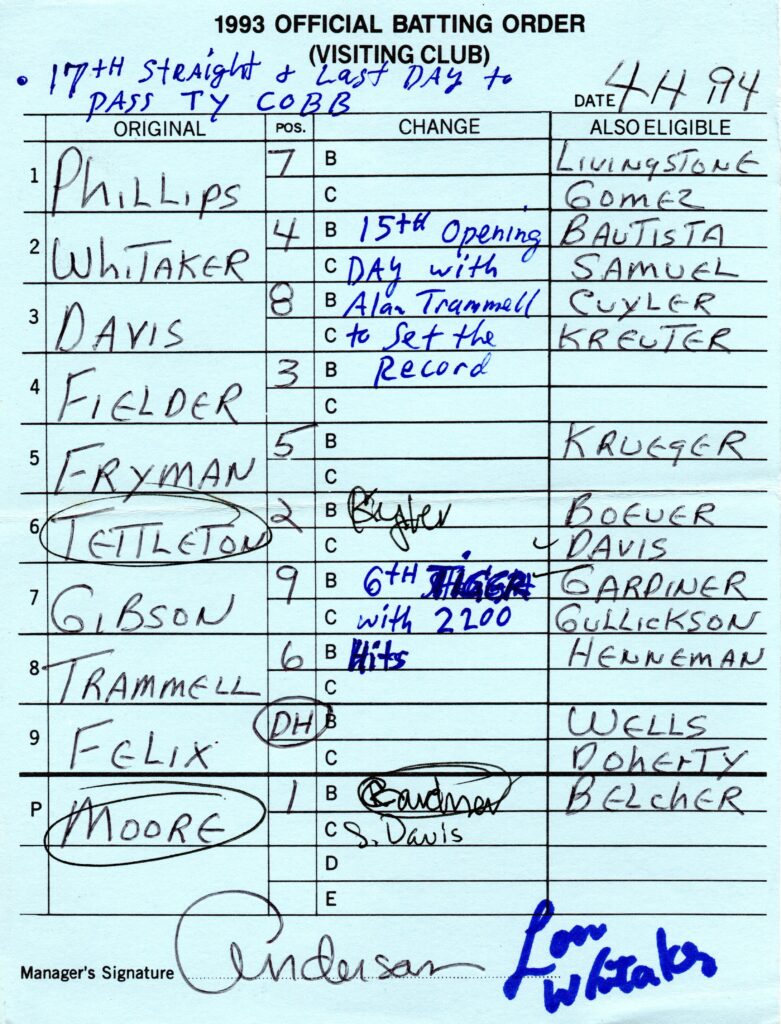 1993 OFFICIAL BATTING ORDER
(VISITING CLUB)
• 17TH Straight & Last DAY to
PASS TY COBB
DATE 4/4/94
ORIGINAL POS. CHANGE ALSO ELIGIBLE
1 PHILLIPS 7 B LIVINGSTONE
C GOMEZ
2 WHITAKER 4 B 15th Opening BAUTISTA
C DAY with SAMUEL
3 DAVIS 8 B Alan Trammell CUYLER
C to Set the KREUTER
4 FIELDER 3 B Record
C
5 FRYMAN 5 B KRUEGER
C
6 TETTLETON 2 B BOEVER
C DAVIS
7 GIBSON 9 B 6TH TIGER GARDINER
C with 2200 GULLICKSON
8 TRAMMELL 6 B Hits HENNEMAN
C
9 FELIX DH B WELLS
C DOHERTY
P MOORE 1 B Gardiner BELCHER
C S. Davis
D
E
Manager's Signature Anderson
Lou
Whitaker